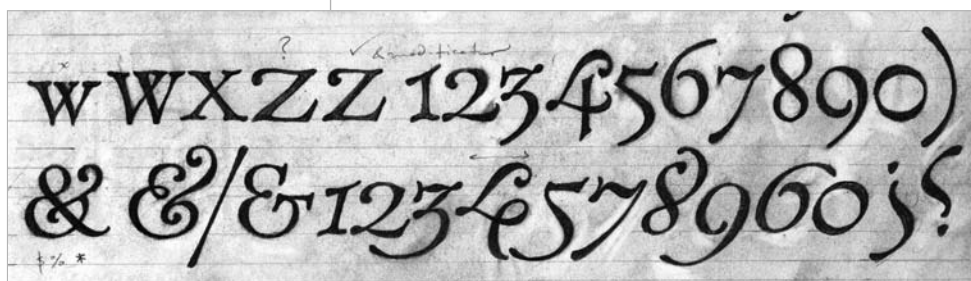 x ?
w W X Z Z 1 2 3 4 5 6 7 8 9 0 )
& & / & 1 2 3 4 5 7 8 9 6 0 ; ?
$ % *